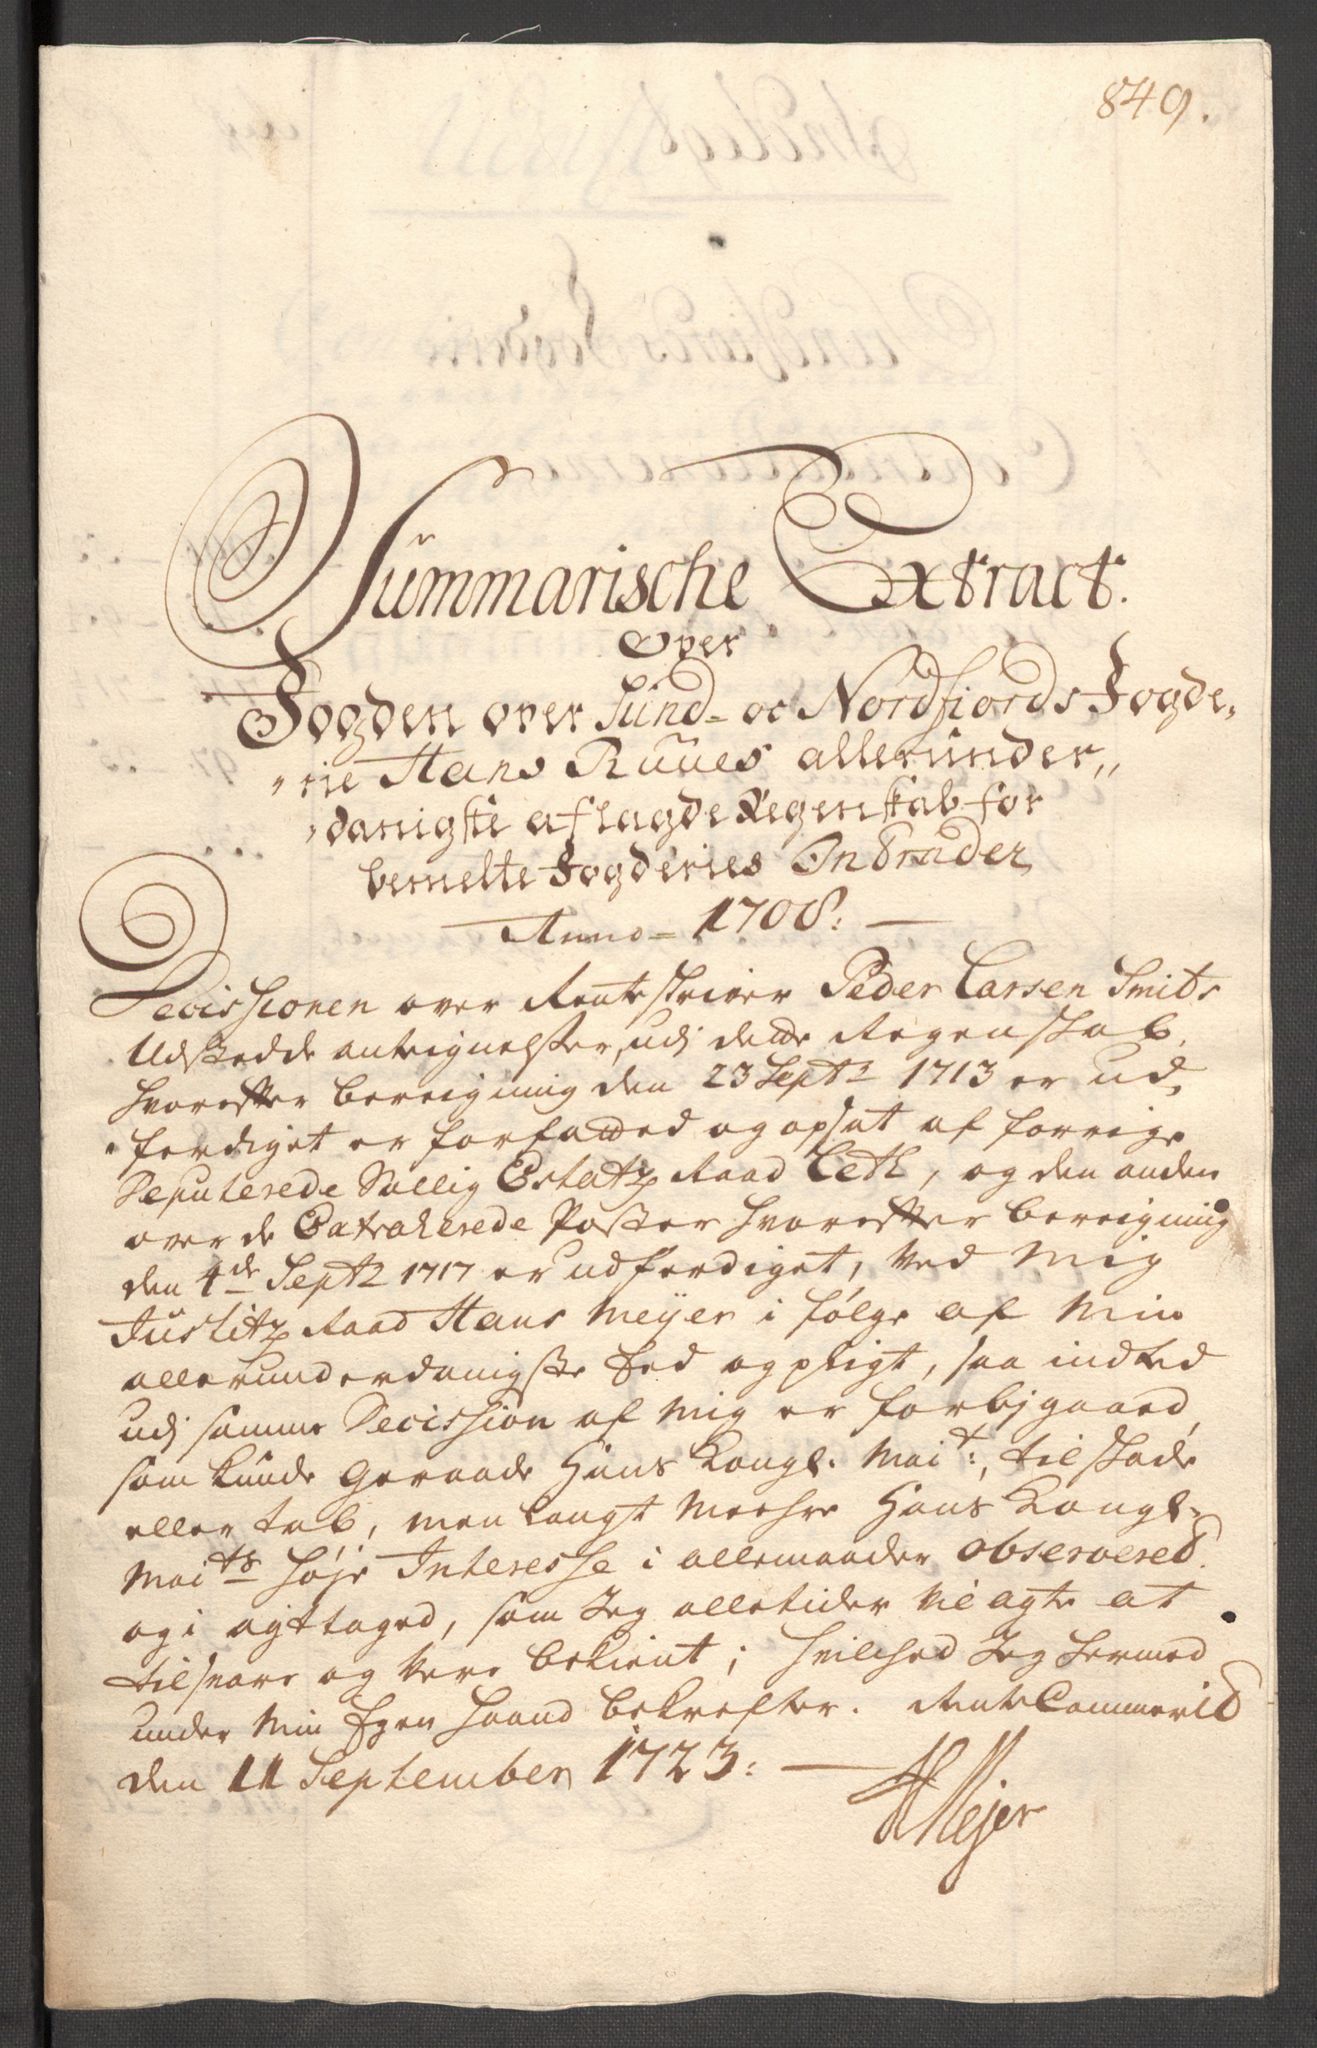 849.
Summarische Extract.
Over
Fogden over Sund- oc Nordfiords Fogde,
rie Hans Ruues allerunder,,
danigste aflagde Regenskab for
bemelte Fogderies Intrader
Anno 1708:
Decissionen over Renteskriver Peder Larsen Smits
Udstedde antegnelser, udj dette Regenskab,
hvorefter beregning den 23 Septr 1713 er ud,
ferdiget er forfatted og opsat af forrige
Deputerede Sallig Estatz Raad Leth, og den anden
over de Extraherede Poster hvorefter beregning
den 4de Septr 1717 er udferdiget, ved Mig
Justitz Raad Hans Meyer i følge af Min
allerunderdanigste Eed og pligt, saa indted
udj samme Decission af Mig er forbjgaaed,
som kunde geraade Hans Kongl. Mait:, til skade
eller tab, men langt meehre Hans Kongl.
Maits høje Interesse i allemaader observered
og i agt taged, som Jeg alletider vil agte at
tilsvare og være bekient; hvilched Jeg hermed
under Min Egen Haand bekrefter. Rente Cammerit
den 11 September 1723:
HMejer